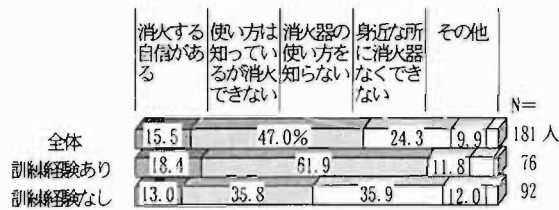 消火する自信がある
使い方は知っているが消火できない
消火器の使い方を知らない
身近な所に消火器なくできない
その他
N=
全体 15.5 47.0% 24.3 9.9 181人
訓練経験あり 18.4 61.9 11.8 76
訓練経験なし 13.0 35.8 35.9 12.0 92